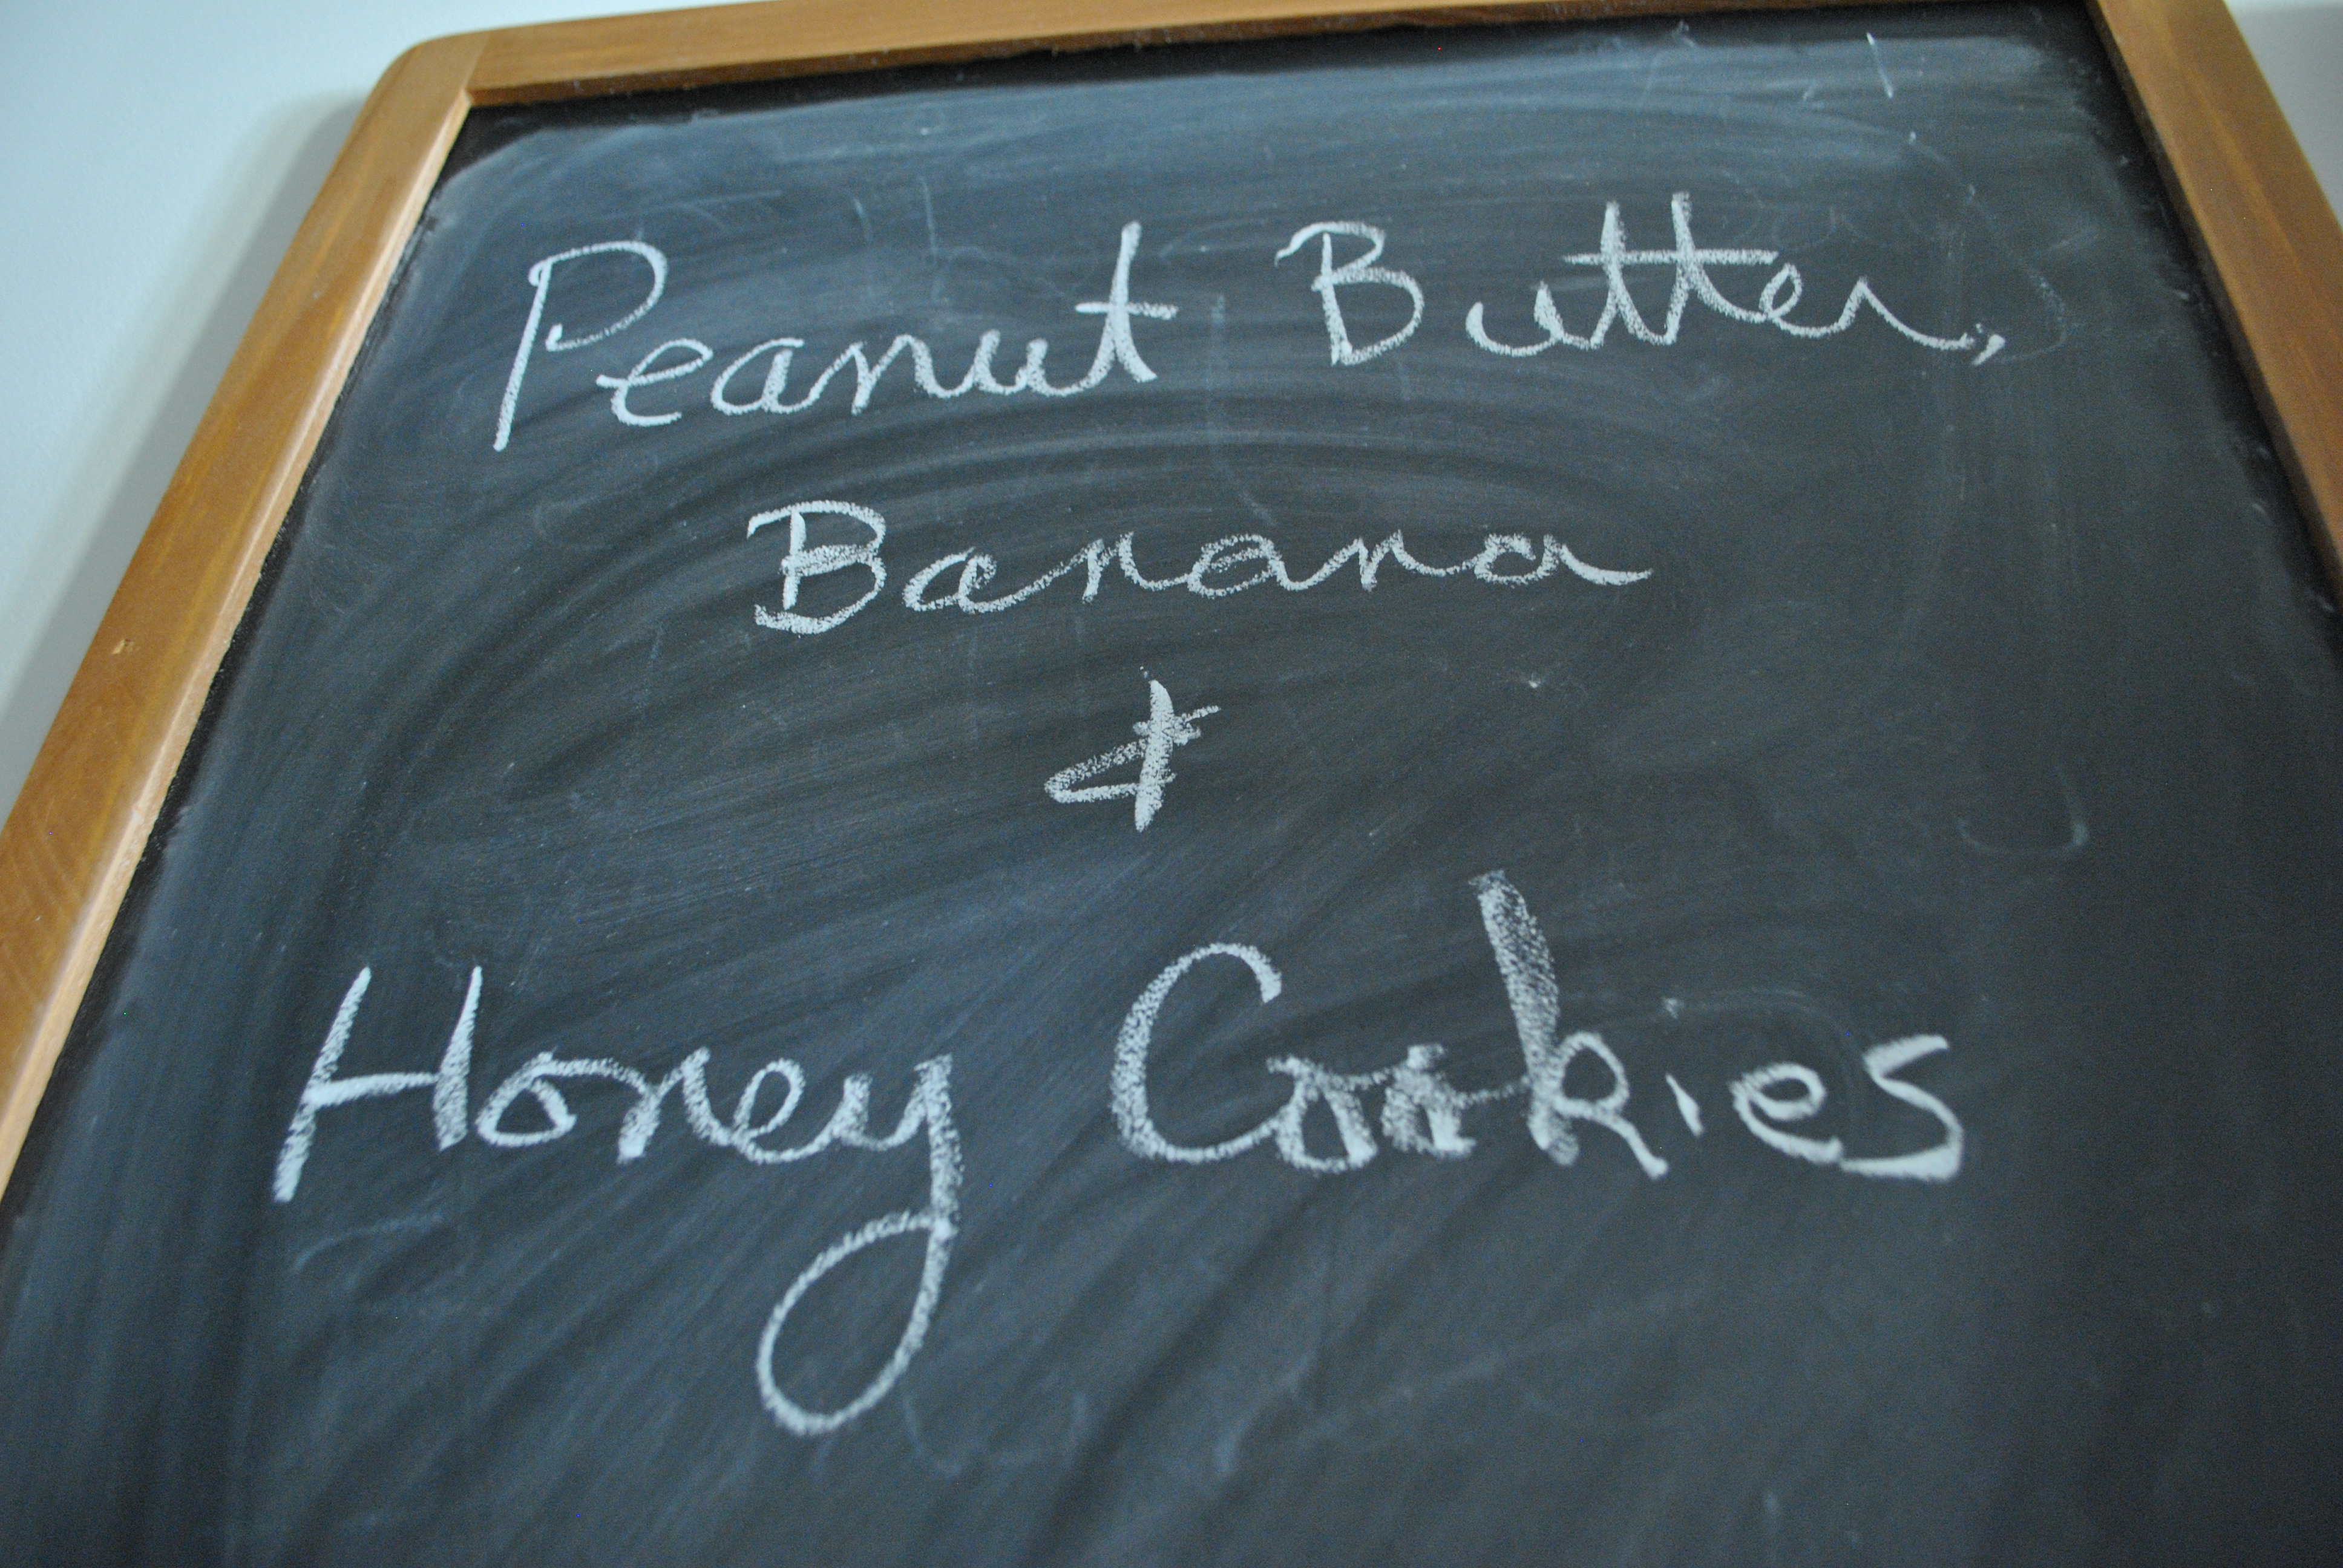 Peanut Butter,
Banana
&
Honey Cookies